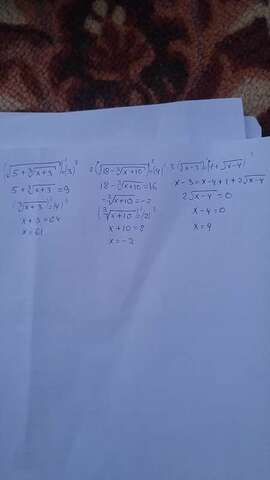 (√(5+∛(x+3)))²=(3)²
5+∛(x+3)=9
(∛(x+3))³=(4)³
x+3=64
x=61
2. (√(18-∛(x+10)))²=(4)²
18-∛(x+10)=16
-∛(x+10)=-2
(∛(x+10))³=(2)³
x+10=8
x=-2
3. (√(x-3))²=(1+√(x-4))²
x-3=x-4+1+2√(x-4)
2√(x-4)=0
x-4=0
x=4